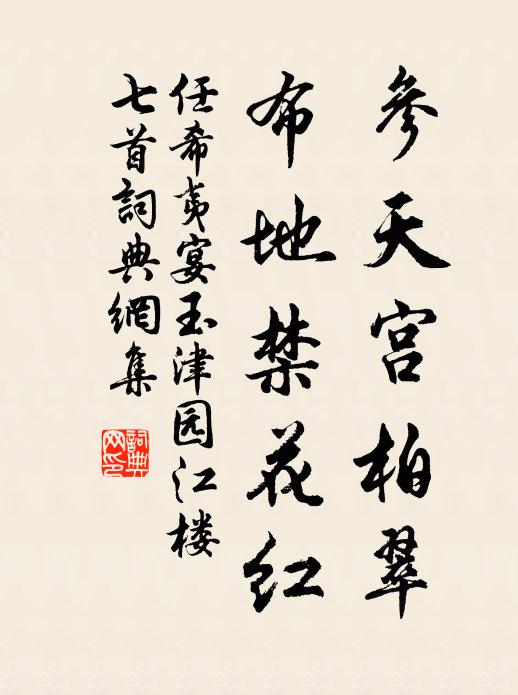 參天宫柏翠
布地禁花红
任希夷宴玉津园江楼
七首詞典網集
詞典
网印